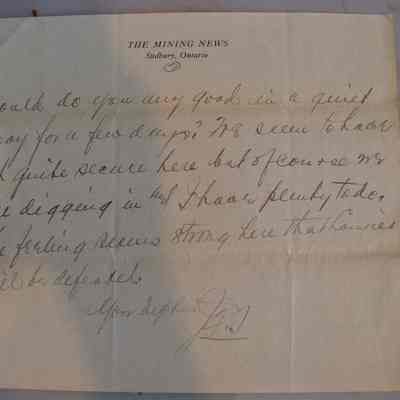 THE MINING NEWS
Sudbury, Ontario
ould do you any good in a quiet
way for a few days? We seem to have
quite secure here but of course we
digging in and I have plenty to do.
feeling seems strong here that
be defended.
Your